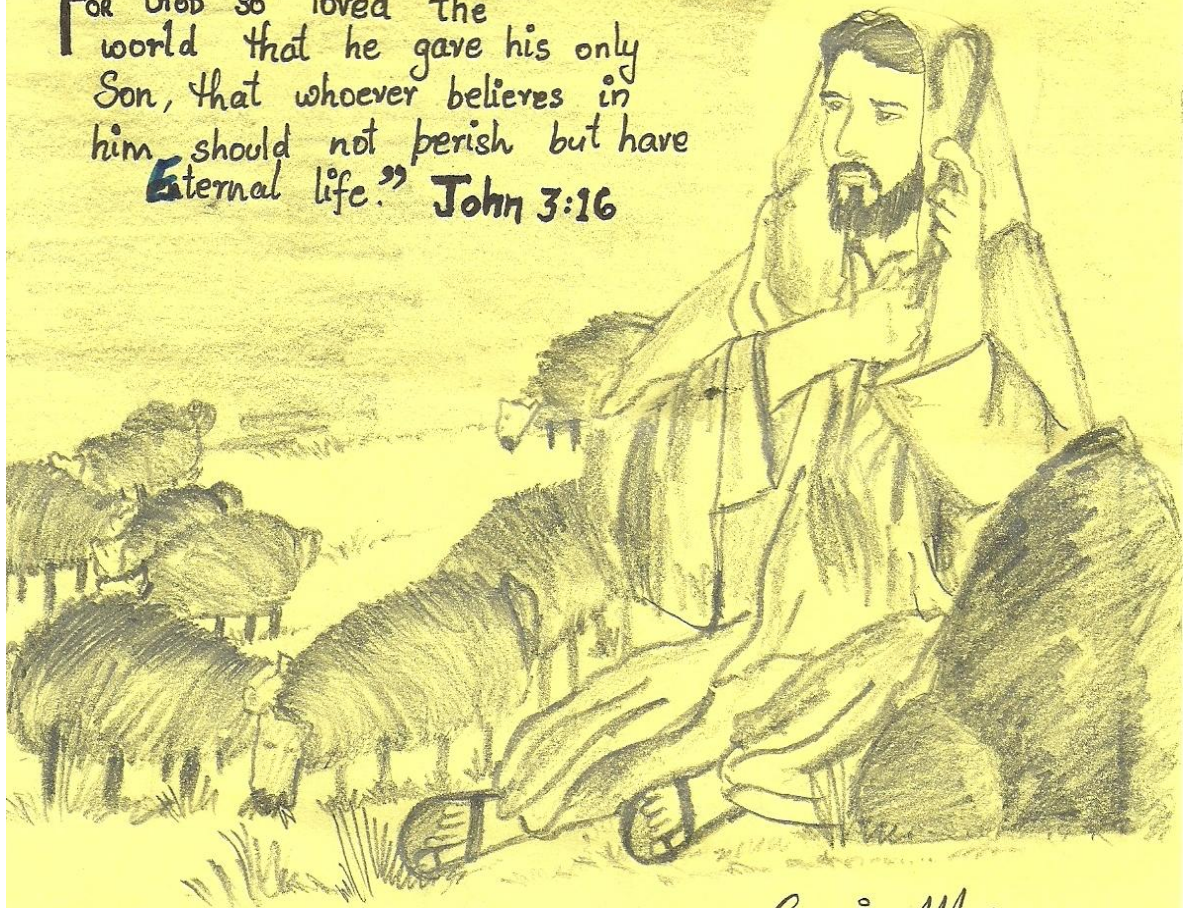 FOR GOD so loved the
world that he gave his only
Son, that whoever believes in
him should not perish but have
Eternal life.” John 3:16